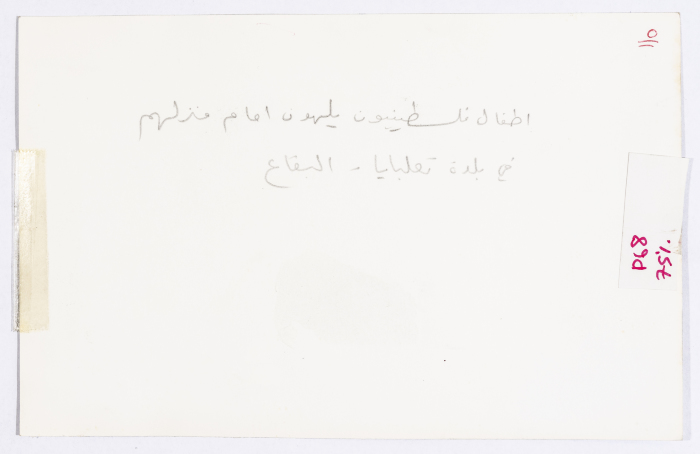 اطفال فلسطينيون يلهون امام منزلهم
في بلدة تعلبايا - البقاع
P68
75%